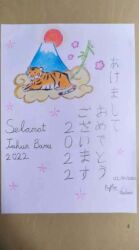 あけまして
おめでとう
ございます
2022
Selamat
Tahun Baru
2022